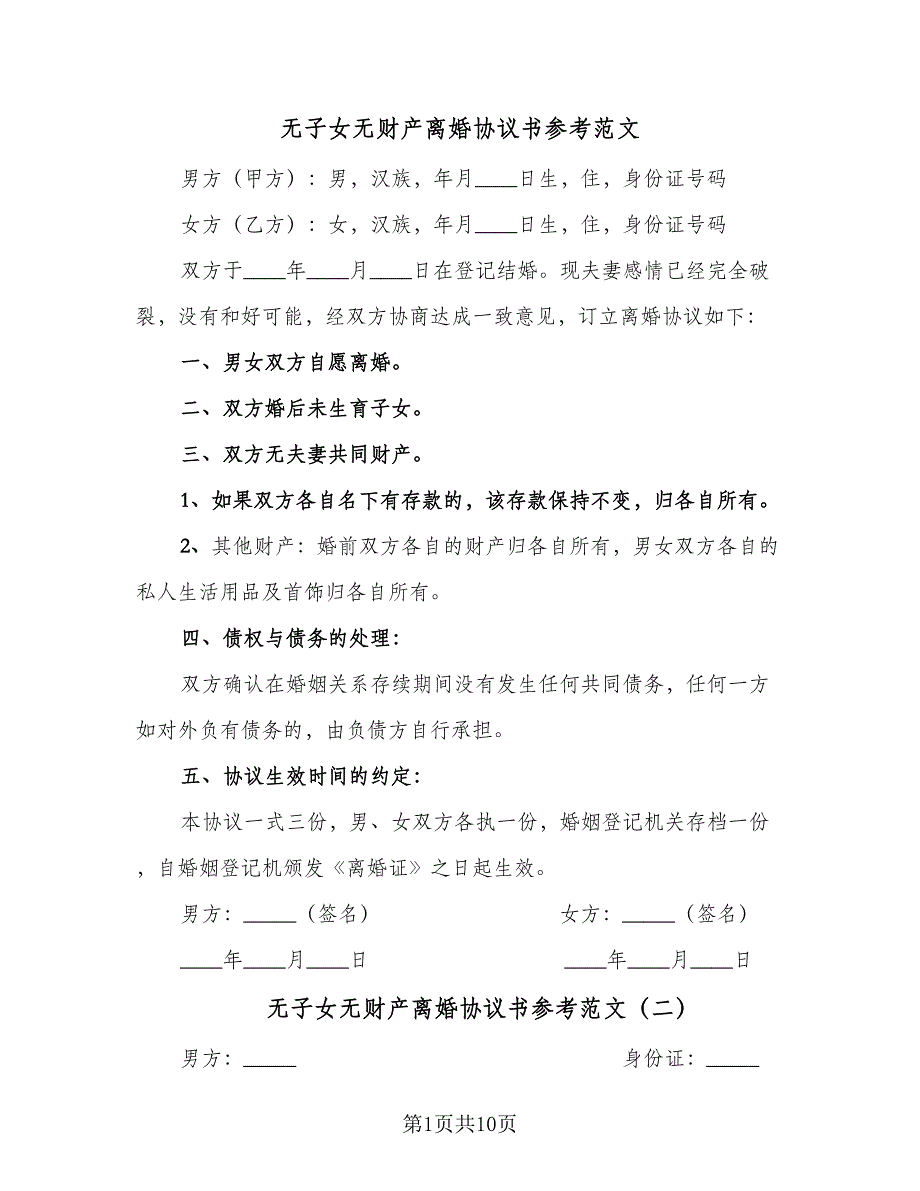 无子女无财产离婚协议书参考范文
男方（甲方）：男，汉族，年月____日生，住，身份证号码
女方（乙方）：女，汉族，年月____日生，住，身份证号码
双方于____年____月____日在登记结婚。现夫妻感情已经完全破
裂，没有和好可能，经双方协商达成一致意见，订立离婚协议如下：
一、男女双方自愿离婚。
二、双方婚后未生育子女。
三、双方无夫妻共同财产。
1、如果双方各自名下有存款的，该存款保持不变，归各自所有。
2、其他财产：婚前双方各自的财产归各自所有，男女双方各自的
私人生活用品及首饰归各自所有。
四、债权与债务的处理：
双方确认在婚姻关系存续期间没有发生任何共同债务，任何一方
如对外负有债务的，由负债方自行承担。
五、协议生效时间的约定：
本协议一式三份，男、女双方各执一份，婚姻登记机关存档一份
，自婚姻登记机颁发《离婚证》之日起生效。
男方：_____（签名） 女方：_____（签名）
____年____月____日 ____年____月____日
无子女无财产离婚协议书参考范文（二）
男方：_____ 身份证：_____
第1页共10页